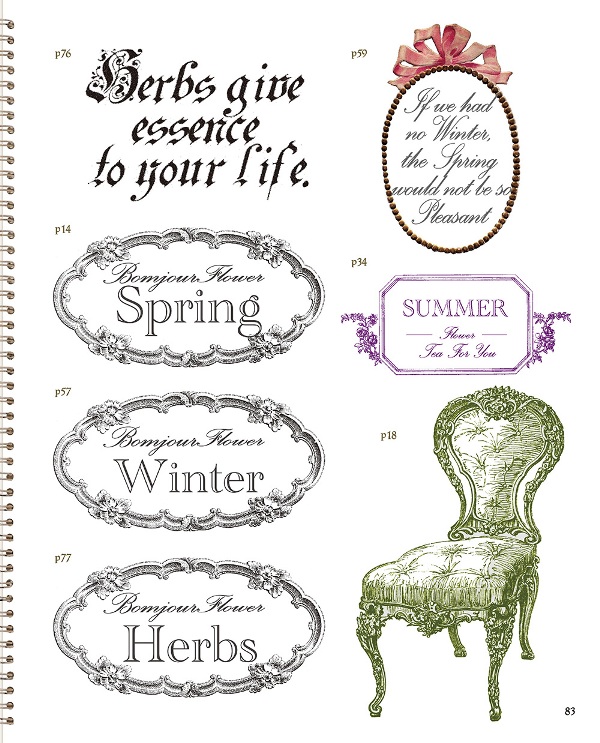 p76
Herbs give
essence
to your life.
p59
If we had
no Winter,
the Spring
would not be so
Pleasant
p14
Bomjour Flower
Spring
p34
SUMMER
Flower
Tea For You
p57
Bomjour Flower
Winter
p18
p77
Bomjour Flower
Herbs
83